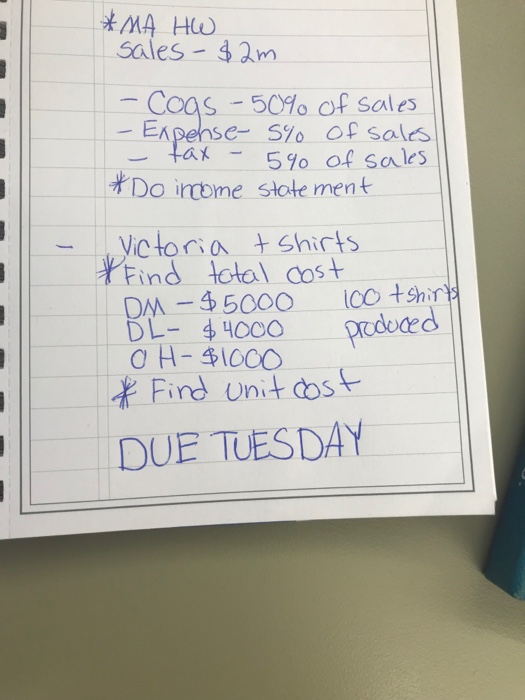 * MA HW
Sales - $2m
- Cogs - 50% of sales
- Expense - 5% of sales
- tax - 5% of sales
* Do income statement
- Victoria t shirts
* Find total cost
DM - $5000 100 t shirts
DL - $4000 produced
OH - $1000
* Find unit cost
DUE TUESDAY